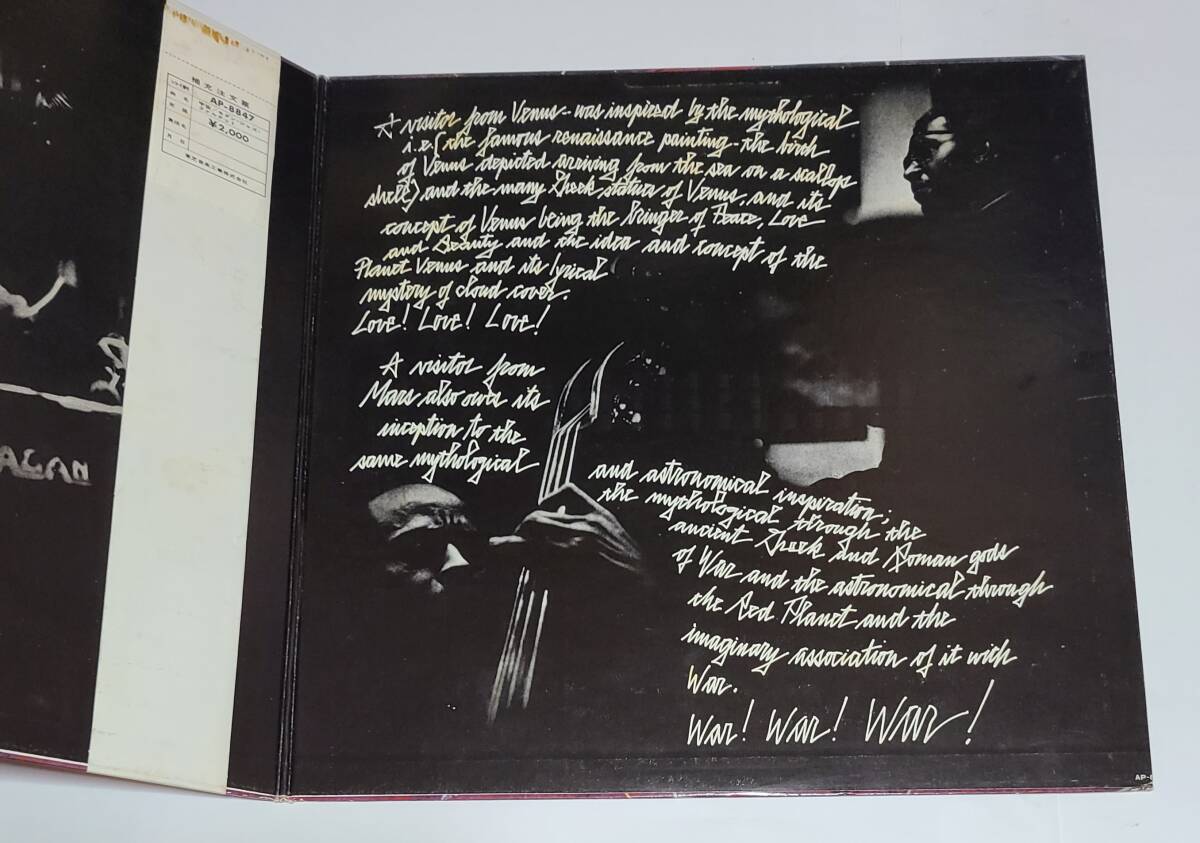 補充注文票
AP-8847
¥2,000
月日
東芝音楽工業株式会社
AGAN
A visitor from Venus - was inspired by the mythological
i.e. (the famous renaissance painting - the birth
of Venus depicted arriving from the sea on a scallop
shell) and the many Greek statues of Venus, and its
concept of Venus being the bringer of Peace, Love
and Beauty and the idea and concept of the
Planet Venus and its lyrical
mystery of cloud cover.
Love! Love! Love!
A visitor from
Mars also owes its
inception to the
same mythological
and astronomical inspiration;
the mythological through the
ancient Greek and Roman gods
of War and the astronomical through
the Red Planet and the
imaginary association of it with
War.
War! War! War!
AP-8